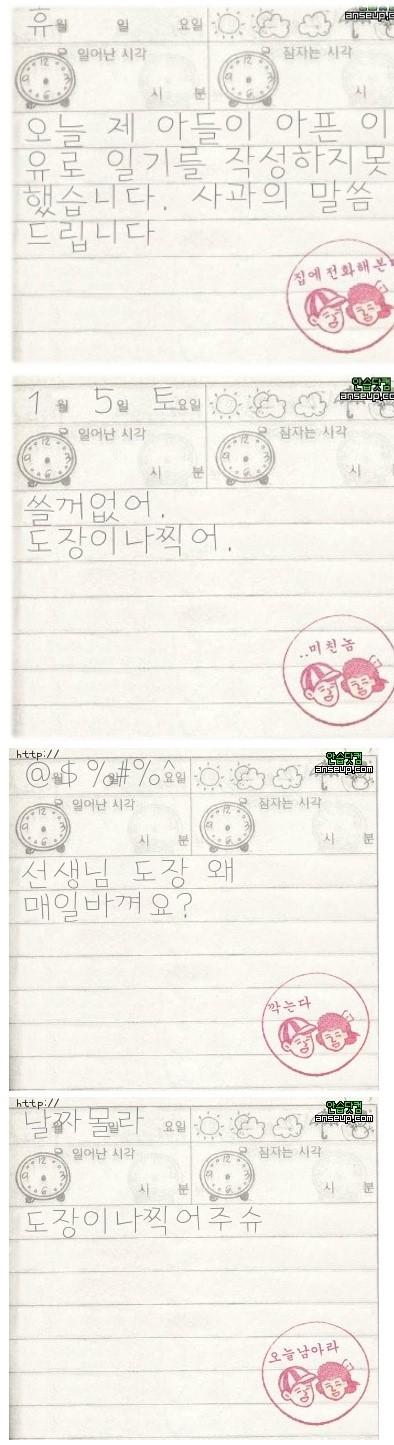 휴월 일 요일
anseup.com
일어난 시각 잠자는 시각
시 분 시
오늘 제 아들이 아픈 이
유로 일기를 작성하지못
했습니다. 사과의 말씀
드립니다
집에전화해본다
1월 5일 토요일
안습닷컴
anseup.com
일어난 시각 잠자는 시각
시 분 시
쓸꺼없어.
도장이나찍어.
..미친놈
http://
@월$%일#%^요일
안습닷컴
anseup.com
일어난 시각 잠자는 시각
시 분 시 분
선생님 도장 왜
매일바껴요?
깍는다
http://
날짜몰라 요일
안습닷컴
anseup.com
일어난 시각 잠자는 시각
시 분 시 분
도장이나찍어주슈
오늘남아라